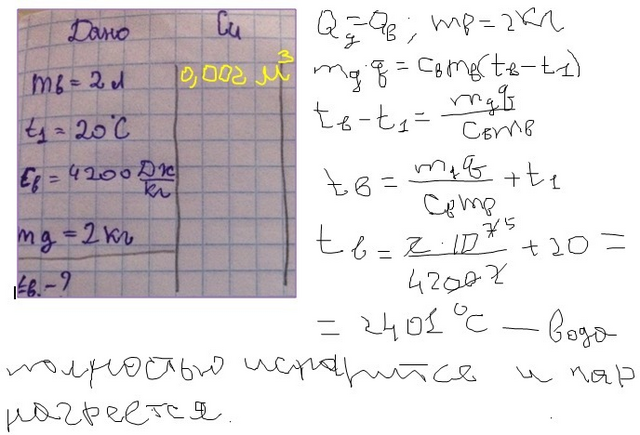 Дано Си
mв = 2 л 0,002 м³
t₁ = 20°C
Cв = 4200 Дж/кг
mд = 2 кг
tв. - ?
Qд = Qв ; mв = 2 кг
mд q = Cв mв (tв - t₁)
tв - t₁ = mд q / Cв mв
tв = m₁ q / Cв mв + t₁
tв = 2 · 10⁷ ⁵ / 4200 2 + 20 =
= 2401 °C — вода
полностью испарится и пар
нагреется.